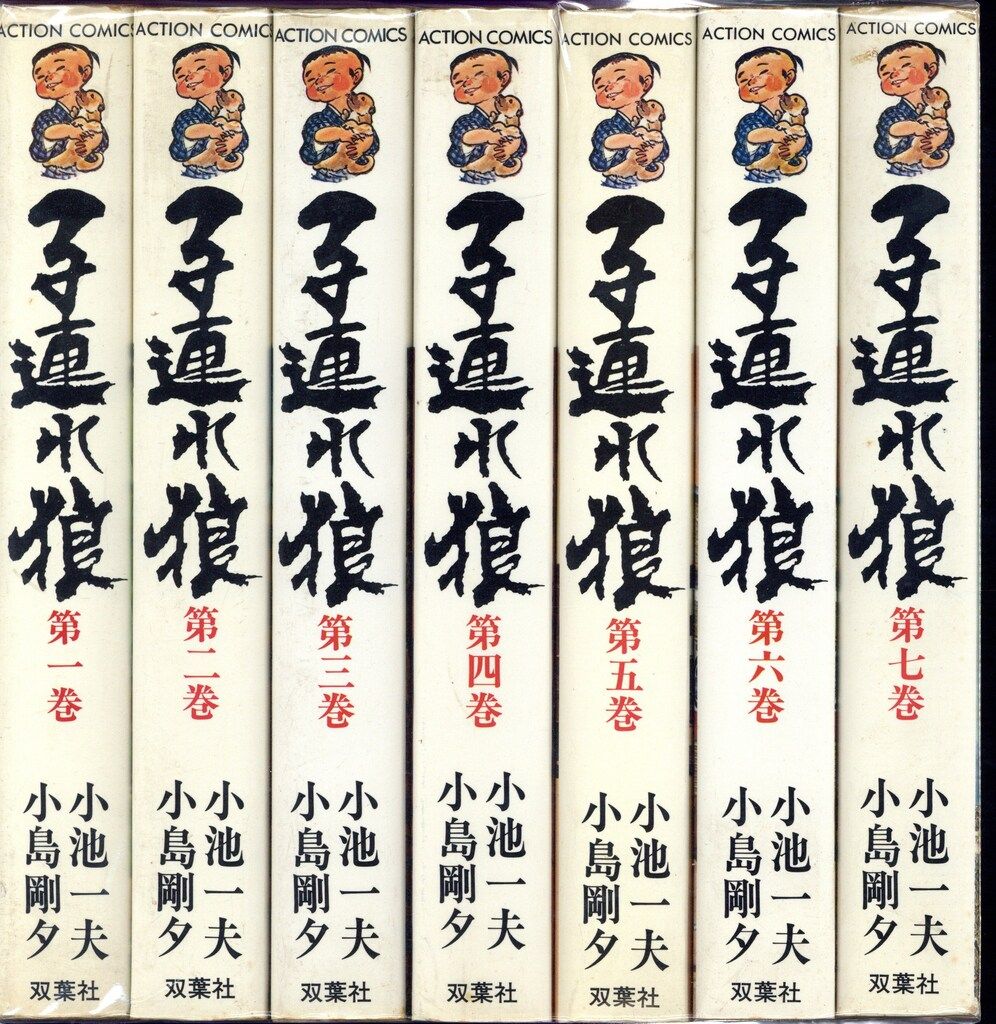 ACTION COMICS
子連れ狼
第一巻
小池一夫
小島剛夕
双葉社
ACTION COMICS
子連れ狼
第二巻
小池一夫
小島剛夕
双葉社
ACTION COMICS
子連れ狼
第三巻
小池一夫
小島剛夕
双葉社
ACTION COMICS
子連れ狼
第四巻
小池一夫
小島剛夕
双葉社
ACTION COMICS
子連れ狼
第五巻
小池一夫
小島剛夕
双葉社
ACTION COMICS
子連れ狼
第六巻
小池一夫
小島剛夕
双葉社
ACTION COMICS
子連れ狼
第七巻
小池一夫
小島剛夕
双葉社